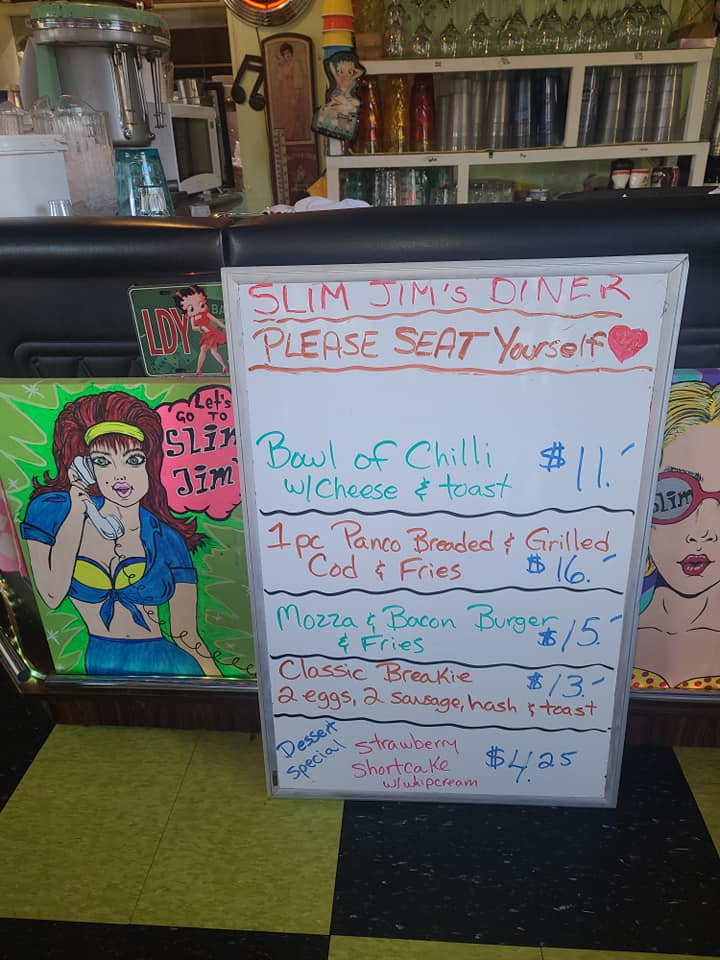 SLIM JIM'S DINER
PLEASE SEAT Yourself
Bowl of Chilli
w/Cheese & toast $11.-
1 pc Panco Breaded & Grilled
Cod & Fries $16.-
Mozza & Bacon Burger
& Fries $15.-
Classic Breakie $13.-
2 eggs, 2 sausage, hash & toast
Dessert
Special
Strawberry
Shortcake
w/whipcream
$4.25
LDY BA
Let's
GO TO
Slim
Jim'
Slim